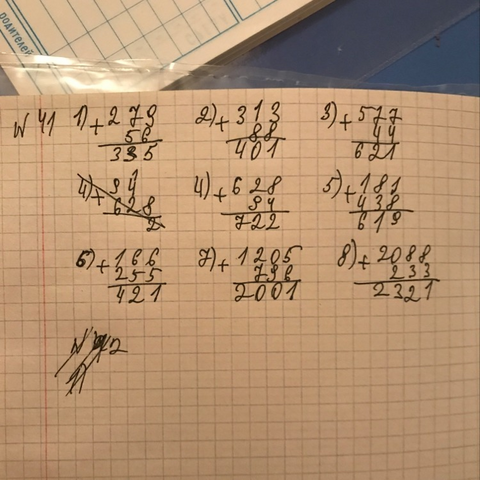 родителей
№ 41 1) + 279 2) + 313 3) + 577
56 88 44
335 401 621
4) + 94 4) + 628 5) + 181
628 94 438
2 722 619
6) + 166 7) + 1205 8) + 2088
255 796 233
421 2001 2321